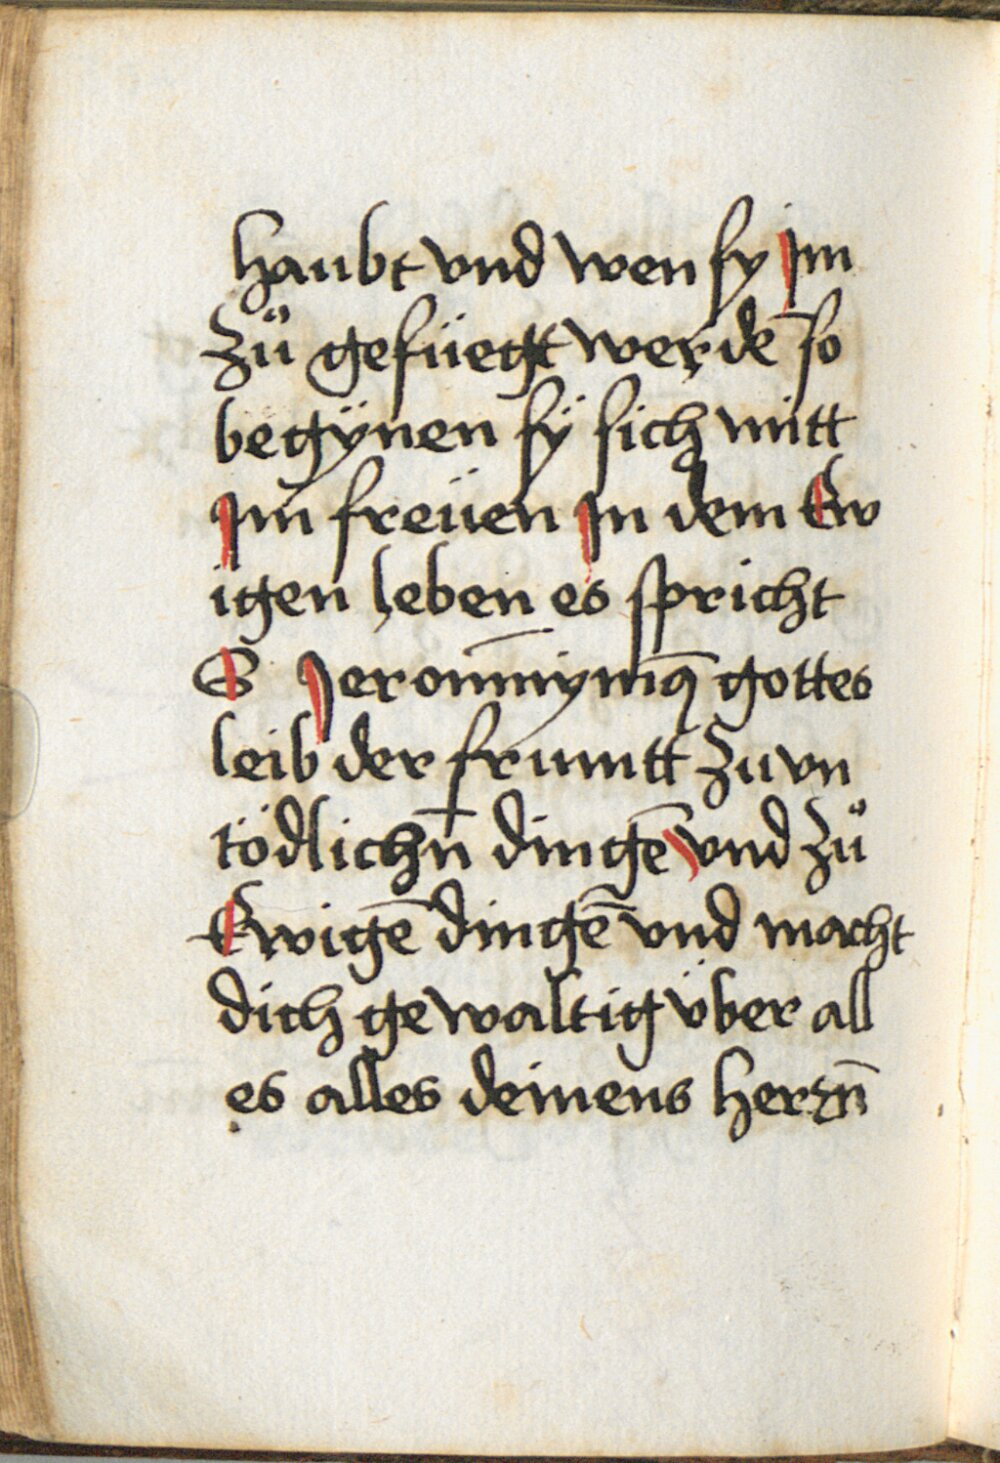 haubt vnd wen sy Jm
zů gefüegt werdē so
begÿnen sÿ sich mitt
Jm freüen Jn dem Ew
igen leben es spricht
S Jeronim̄ymꝰ gottes
leib der frumtt zu vn
tödlichn̄ dingē vnd zů
Ewigē dingē vnd macht
dich gewaltig über all
es alles deinens herꝛn̄